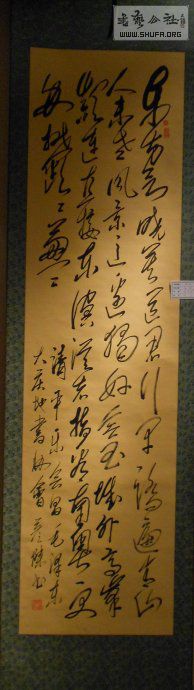 书艺公社
WWW.SHUFA.ORG
东方欲晓莫道君行早踏遍青山
人未老风景这边独好会昌城外高峰
颠连直接东溟战士指看南粤更
加郁々葱々
清平乐会昌毛泽东